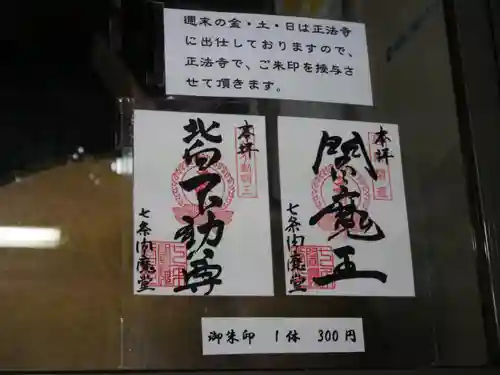 週末の金・土・日は正法寺
に出仕しておりますので、
正法寺で、ご朱印を授与させ
せて頂きます。
本拝
北向不動尊
七条閻魔堂
本拝
閻魔王
七条閻魔堂
御朱印 1体 300円